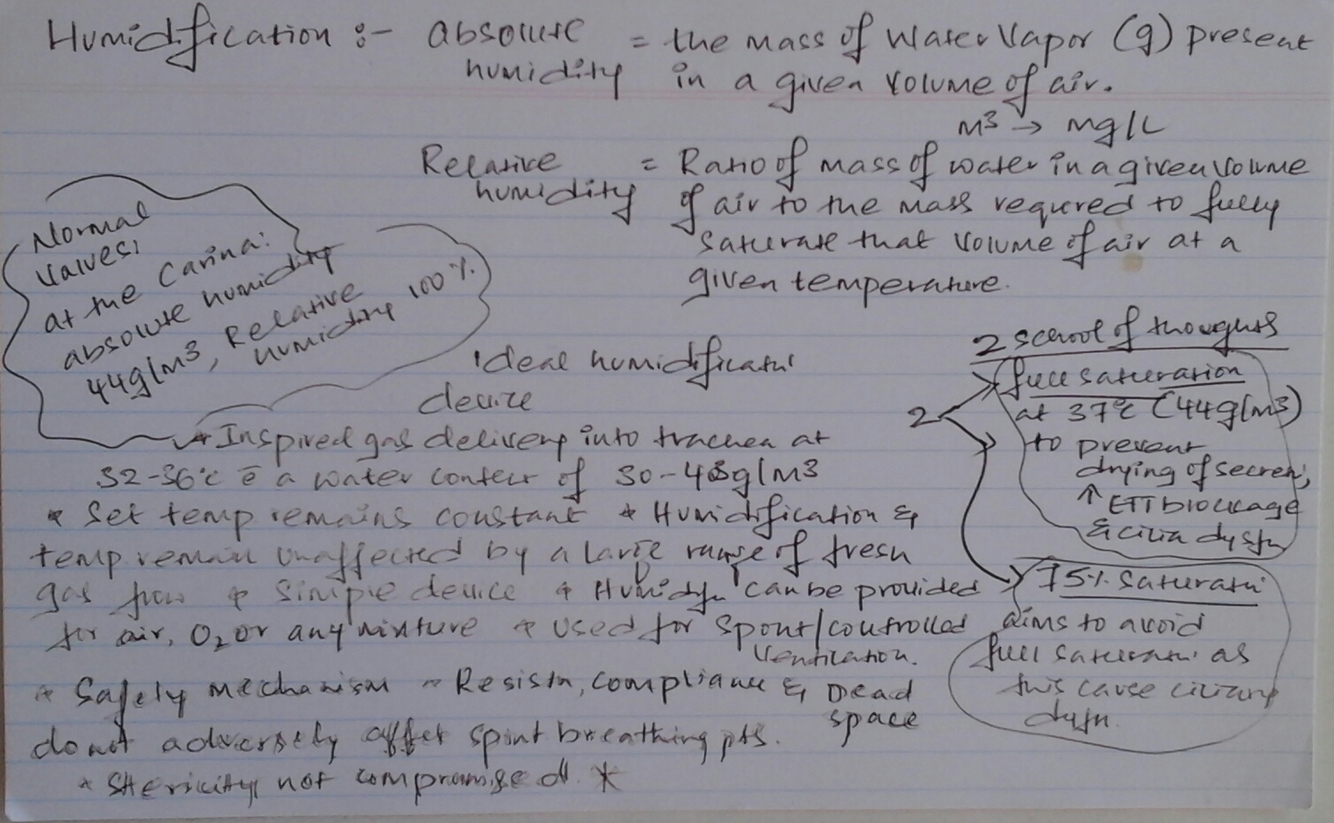 Humidification :- absolute humidity = the mass of Water Vapor (g) present
in a given volume of air.
M3 → mg/L
Relative humidity = Ratio of mass of water in a given volume
of air to the mass required to fully
saturate that volume of air at a
given temperature.
Normal
Values;
at the Carina:
absolute humidity
44g/m3, Relative
humidity 100%
Ideal humidificatn'
device
* Inspired gas delivery into trachea at
32-36°c c̄ a water content of 30-43g/m3
* Set temp remains constant * Humidification &
temp remain unaffected by a large range of fresh
gas flow * Simple device * Humidifn can be provided
for air, O2 or any mixture * used for spont/controlled
Ventilation.
* Safety mechanism * Resistn, compliance & Dead
space
do not adversely affet spont breathing pts.
* Stericity not compromised *
2 school of thoughts
2
full saturation
at 37°c (44g/m3)
to prevent
drying of secren,
↑ ETT blockage
& cilia dysfn
75% saturatn
aims to avoid
full saturatn as
this cause ciliary
dysfn.